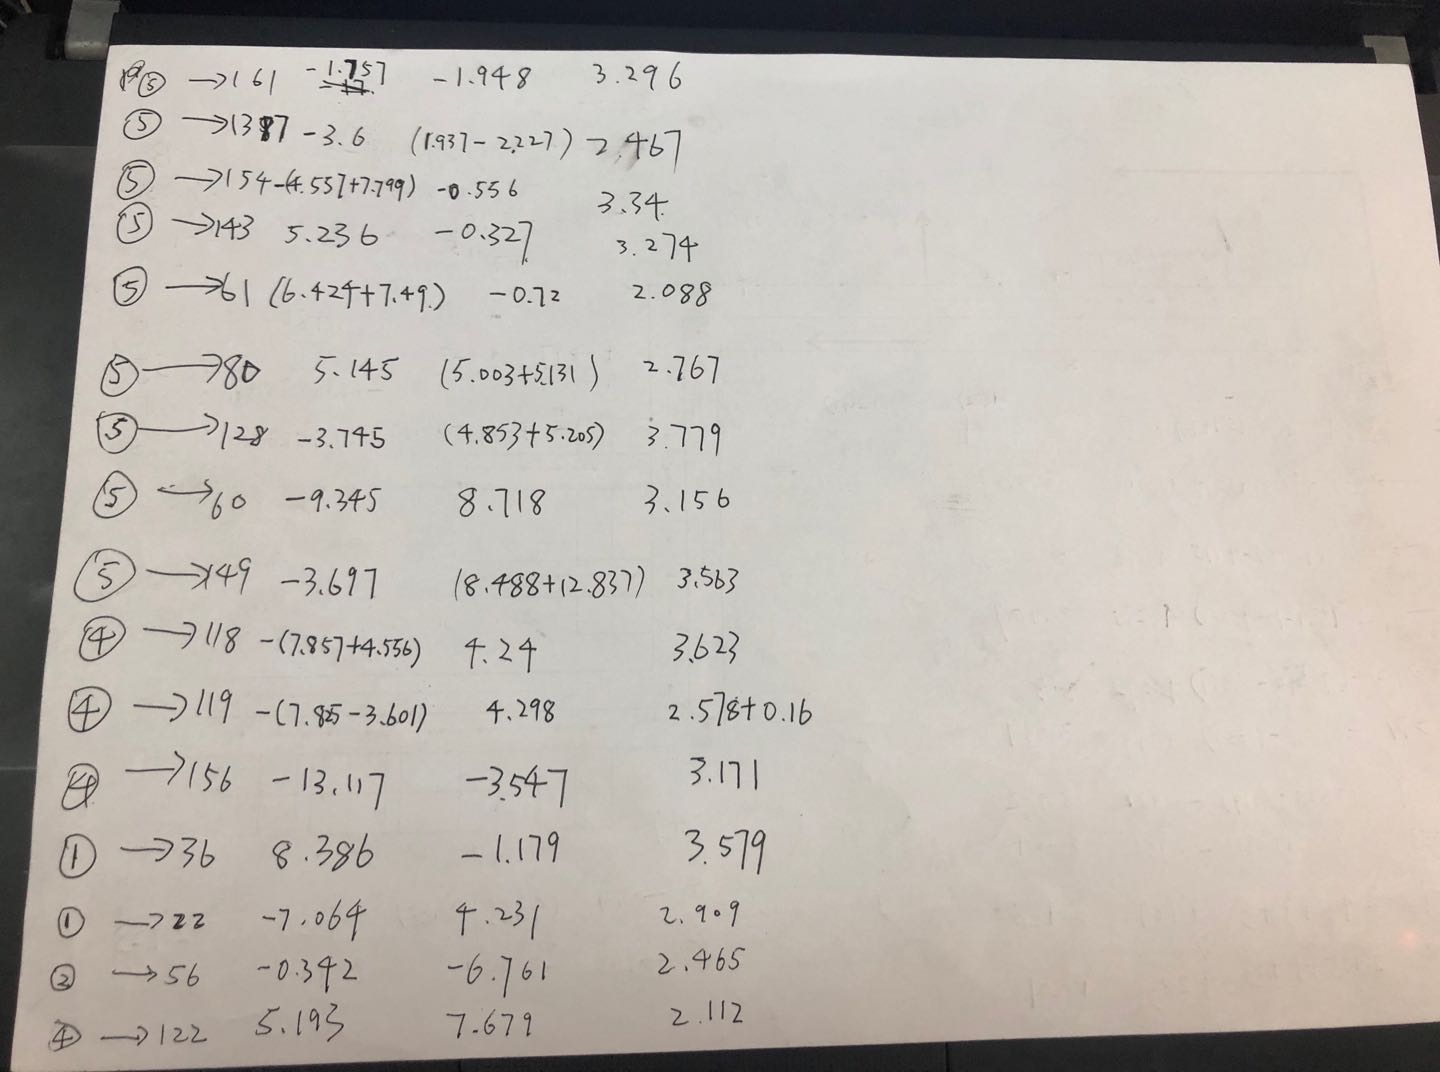 ⑤ →161 -1.757 -1.948 3.296
⑤ →1387 -3.6 (1.937-2.227) 2.467
⑤ →154 -(4.557+7.799) -0.556 3.34
⑤ →143 5.236 -0.327 3.274
⑤ →61 (6.424+7.49) -0.72 2.088
⑤ →80 5.145 (5.003+5.131) 2.767
⑤ →128 -3.745 (4.853+5.205) 3.779
⑤ →60 -9.345 8.718 3.156
⑤ →149 -3.697 (8.488+12.837) 3.563
④ →118 -(7.857+4.556) 4.24 3.623
④ →119 -(7.825-3.601) 4.298 2.578+0.16
④ →156 -13.117 -3.547 3.171
① →36 8.386 -1.179 3.579
① →22 -7.064 4.231 2.909
② →56 -0.342 -6.761 2.465
④ →122 5.193 7.679 2.112